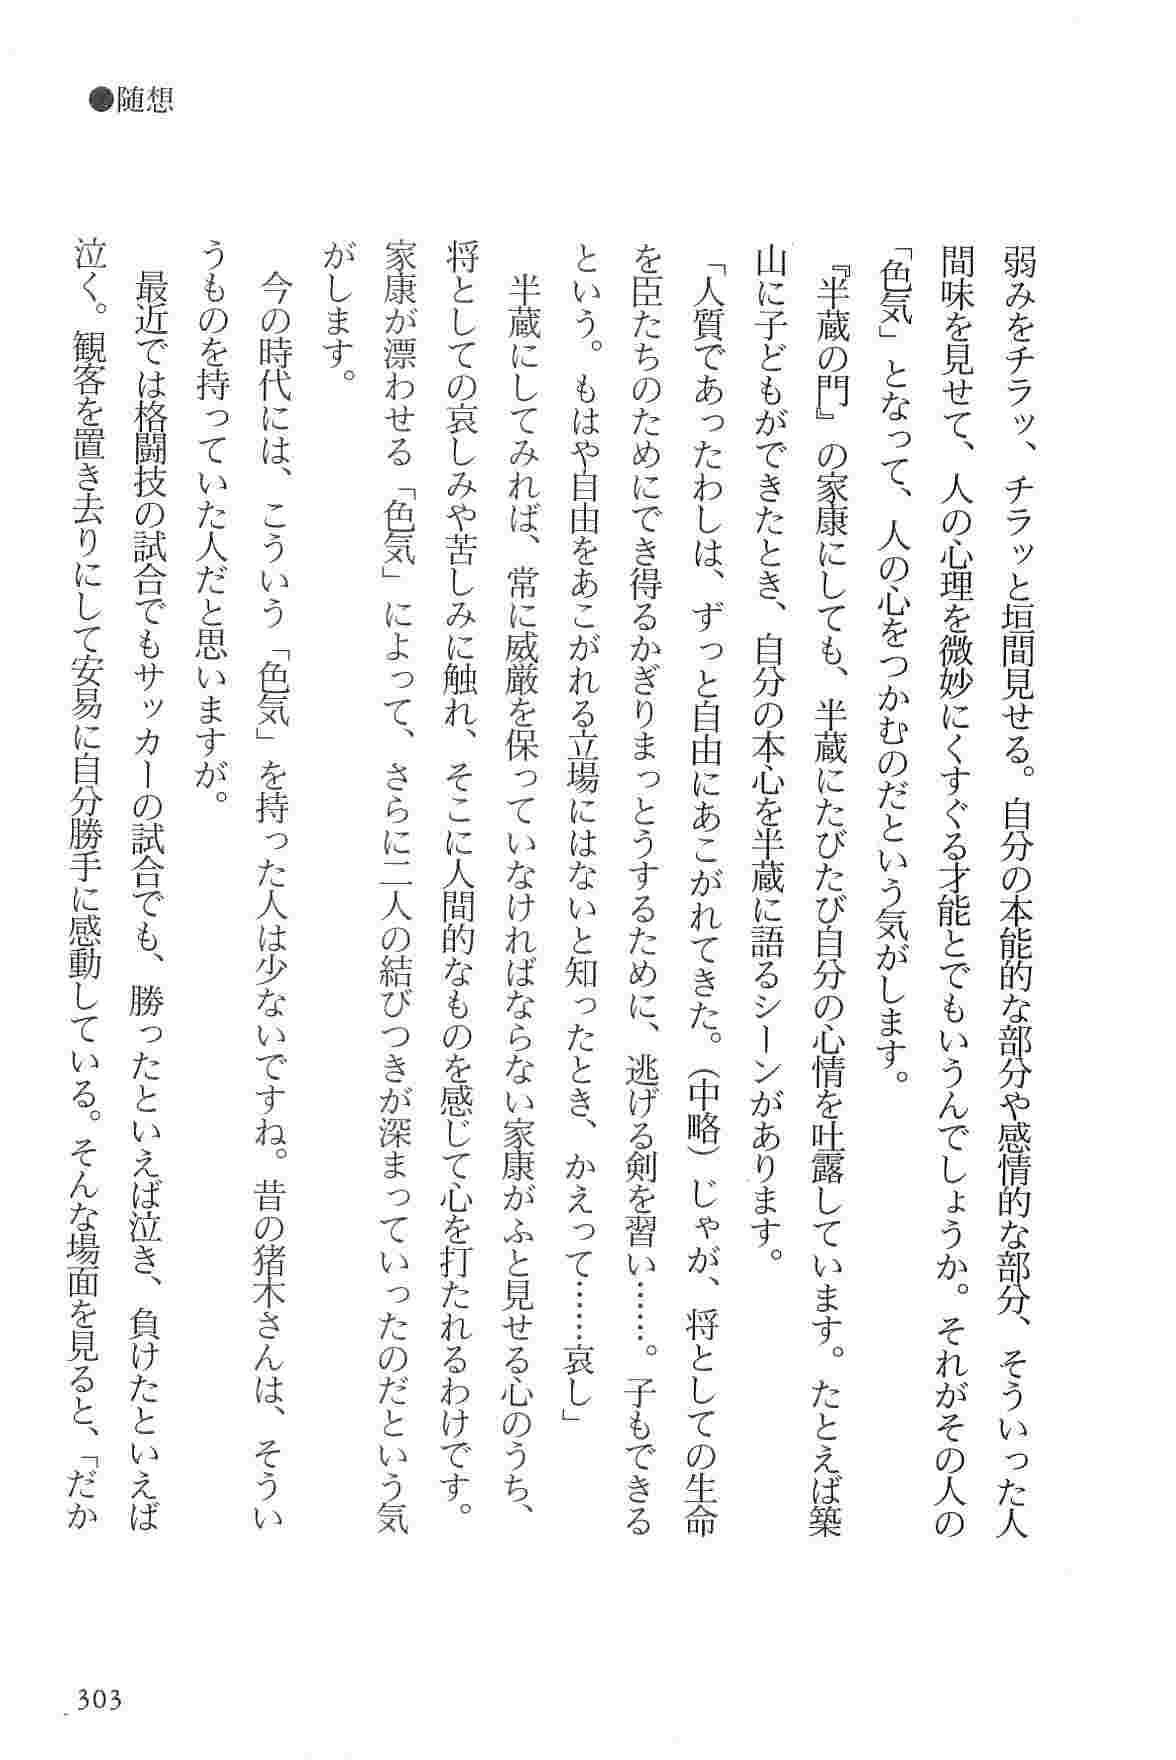 ●随想
弱みをチラッ、チラッと垣間見せる。自分の本能的な部分や感情的な部分、そういった人
間味を見せて、人の心理を微妙にくすぐる才能とでもいうんでしょうか。それがその人の
「色気」となって、人の心をつかむのだという気がします。
『半蔵の門』の家康にしても、半蔵にたびたび自分の心情を吐露しています。たとえば築
山に子どもができたとき、自分の本心を半蔵に語るシーンがあります。
「人質であったわしは、ずっと自由にあこがれてきた。（中略）じゃが、将としての生命
を臣たちのためにでき得るかぎりまっとうするために、逃げる剣を習い……。子もできる
という。もはや自由をあこがれる立場にはないと知ったとき、かえって……哀し」
半蔵にしてみれば、常に威厳を保っていなければならない家康がふと見せる心のうち、
将としての哀しみや苦しみに触れ、そこに人間的なものを感じて心を打たれるわけです。
家康が漂わせる「色気」によって、さらに二人の結びつきが深まっていったのだという気
がします。
今の時代には、こういう「色気」を持った人は少ないですね。昔の猪木さんは、そうい
うものを持っていた人だと思いますが。
最近では格闘技の試合でもサッカーの試合でも、勝ったといえば泣き、負けたといえば
泣く。観客を置き去りにして安易に自分勝手に感動している。そんな場面を見ると、「だか
303